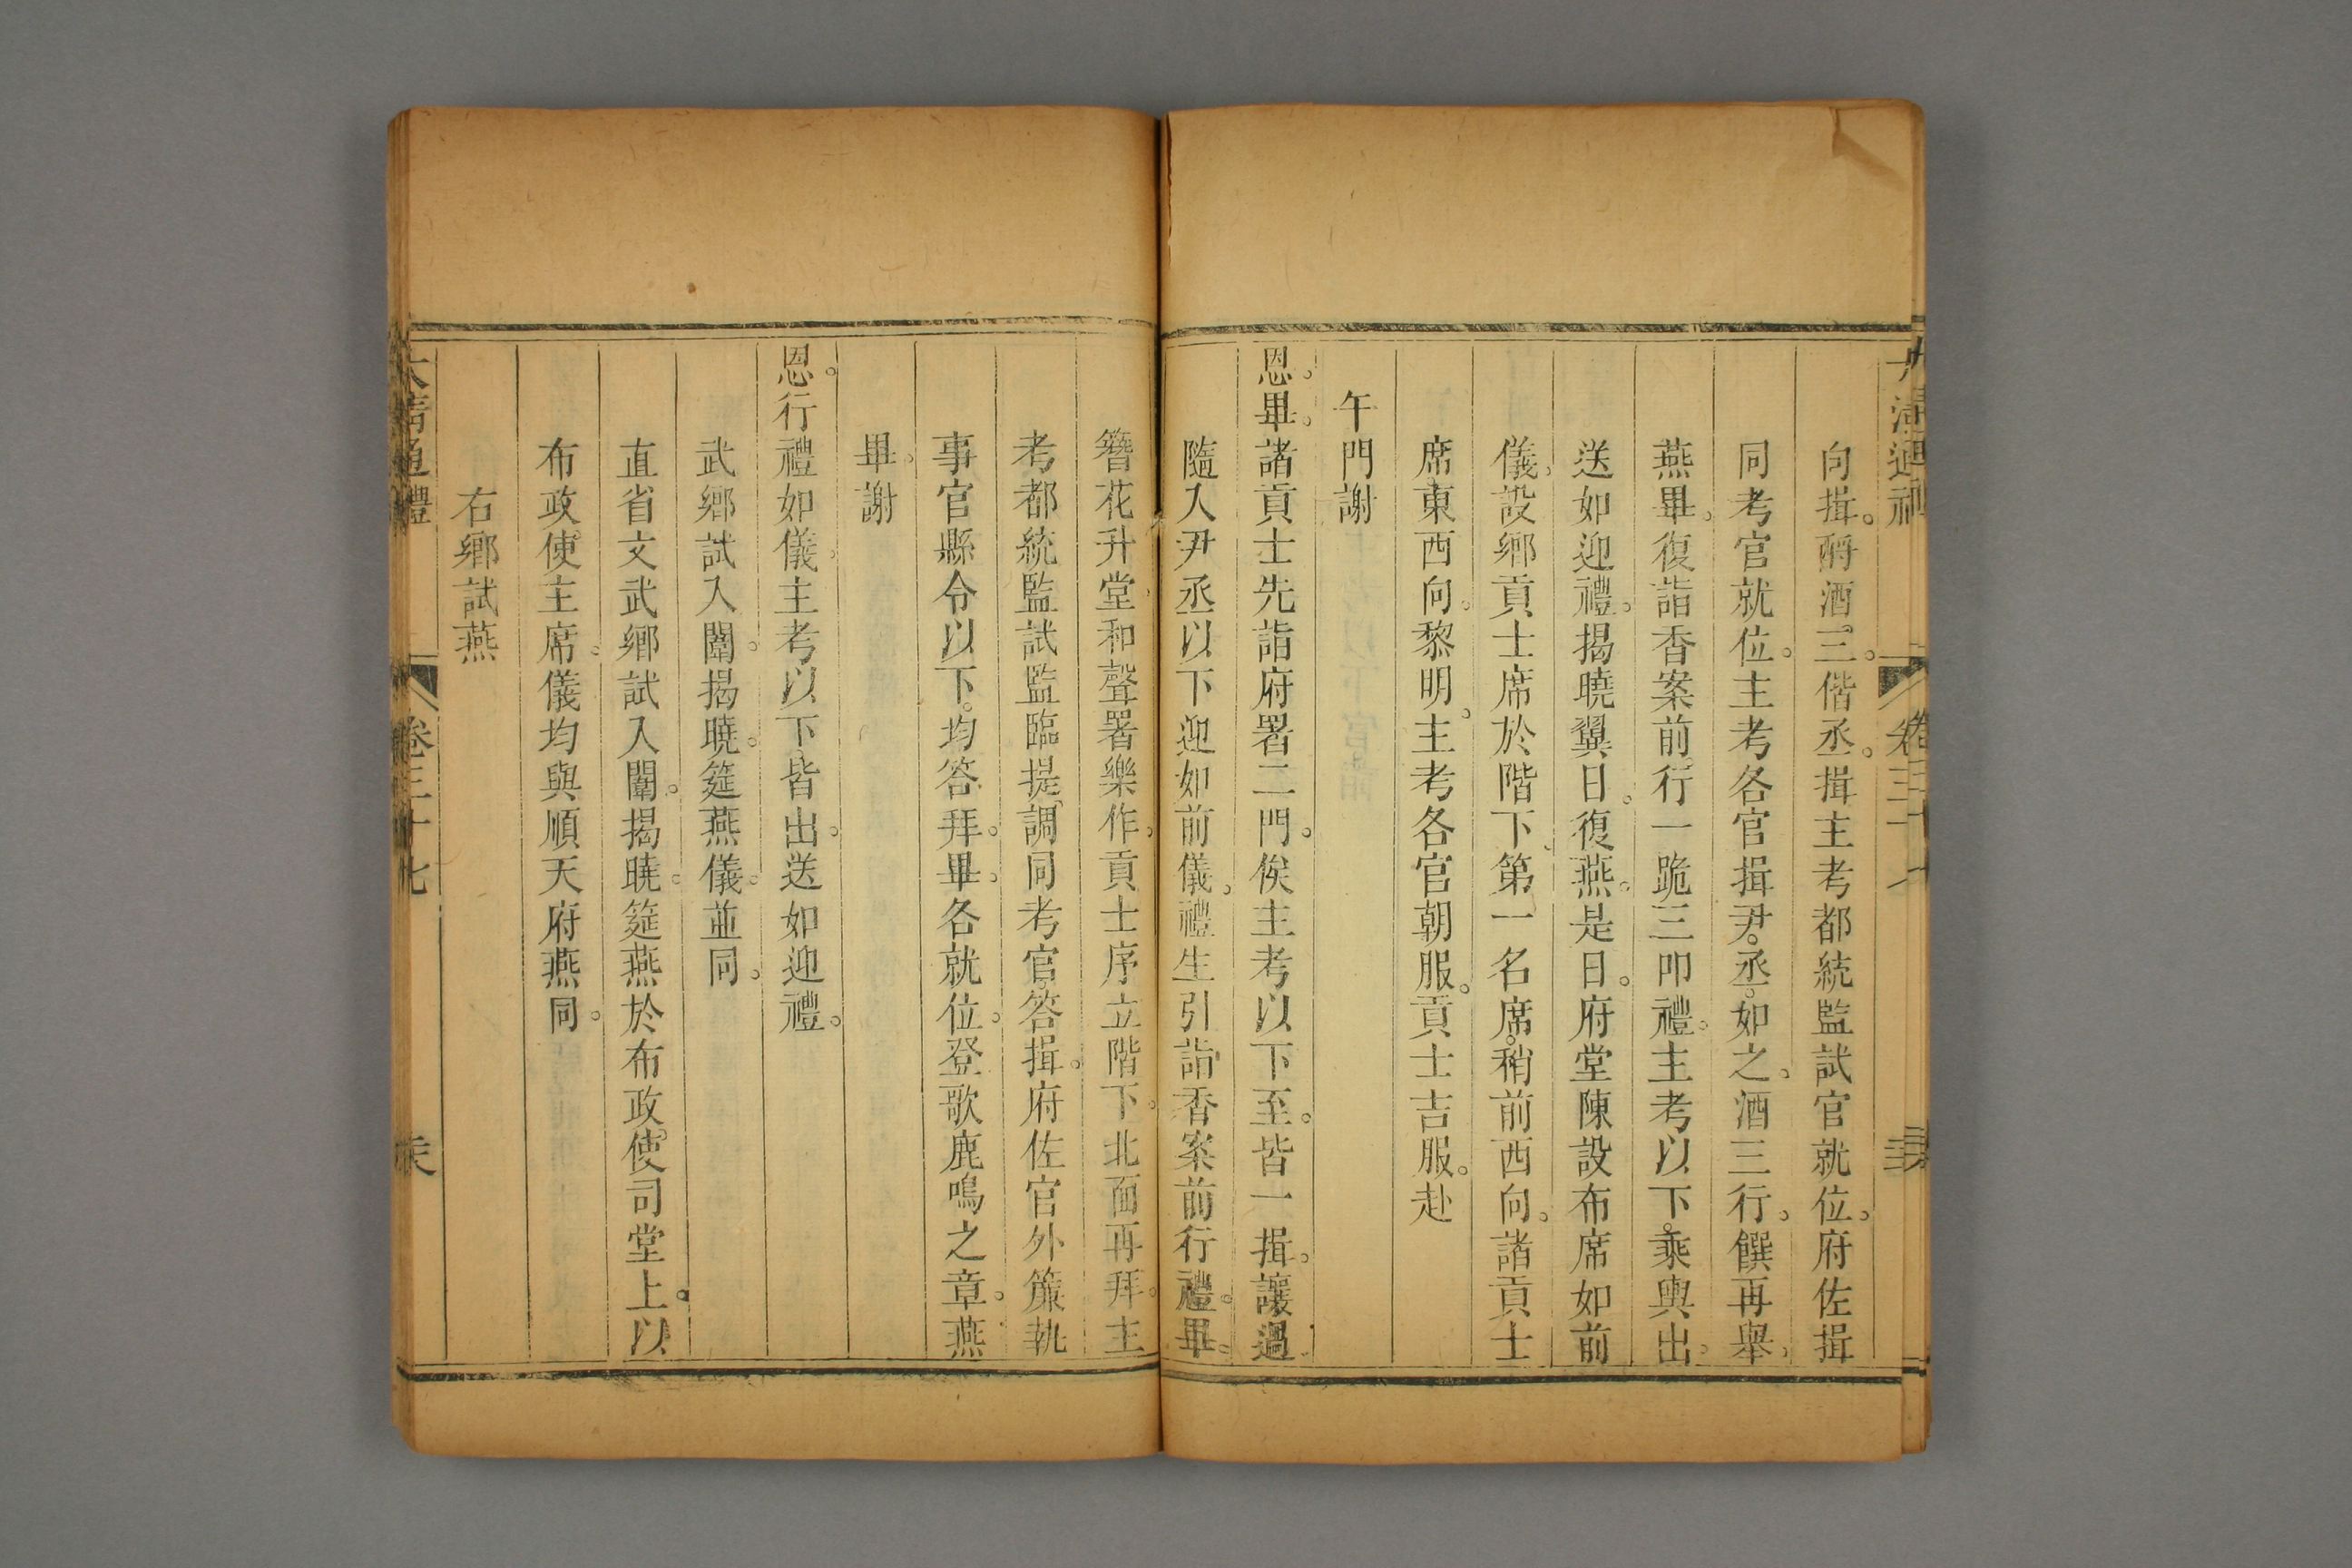 向揖。酹酒。三。偕丞。揖主考都統監試官就位。府佐揖
同考官就位。主考各官揖尹。丞。如之。酒三行。饌再舉。
燕畢。復詣香案前。行一跪三叩禮。主考以下。乘輿出。
送如迎禮。揭曉翼日。復燕。是日。府堂陳設布席如前
儀。設鄉貢士席於階下。第一名席。稍前西向。諸貢士
席東西向。黎明。主考各官朝服。貢士吉服。赴
午門謝
恩。畢。諸貢士先詣府署二門。俟主考以下至。皆一揖。讓過。
隨入尹丞以下迎如前儀。禮生引詣香案前行禮。畢。
簪花升堂。和聲署樂作。貢士序立階下。北面再拜。主
考都統監試監臨提調同考官。答揖。府佐官外簾執
事官縣令以下。均答拜。畢。各就位。登歌鹿鳴之章。燕
畢。謝
恩。行禮如儀。主考以下。皆出。送如迎禮。
武鄉試入闈。揭曉。筵燕儀。並同。
直省文武鄉試入闈。揭曉。筵燕於布政。使司堂上。以
布政。使主席。儀均與順天府燕同。
右鄉試燕
大清通禮
卷三十七